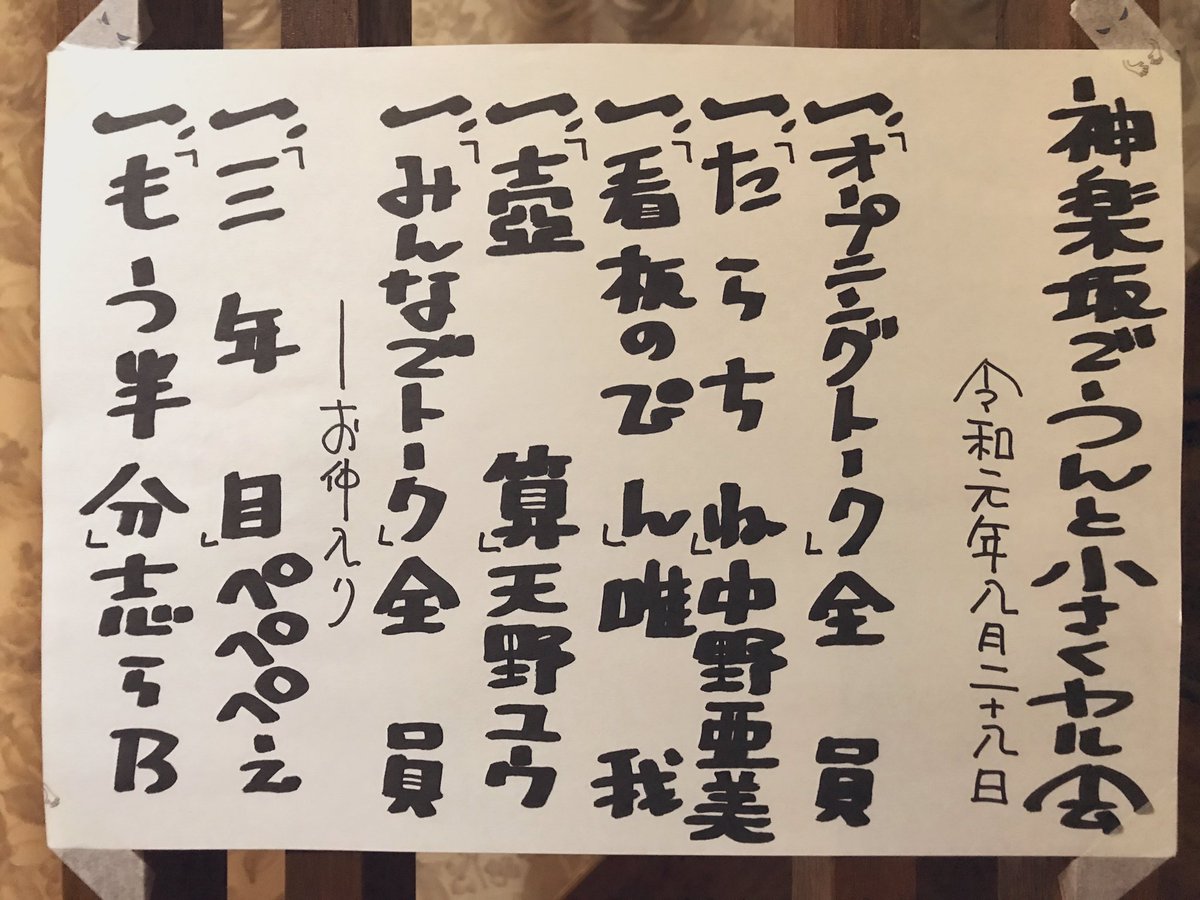 神楽坂でうんと小さくヤル会
令和元年九月二十九日
一、「オープニングトーク」全員
一、「たらちね」中野亜美
一、「看板のぴん」唯我
一、「壺算」天野ユウ
一、「みんなでトーク」全員
―お仲入り
一、「三年目」ペペペペえ
一、「もう半分」志らB